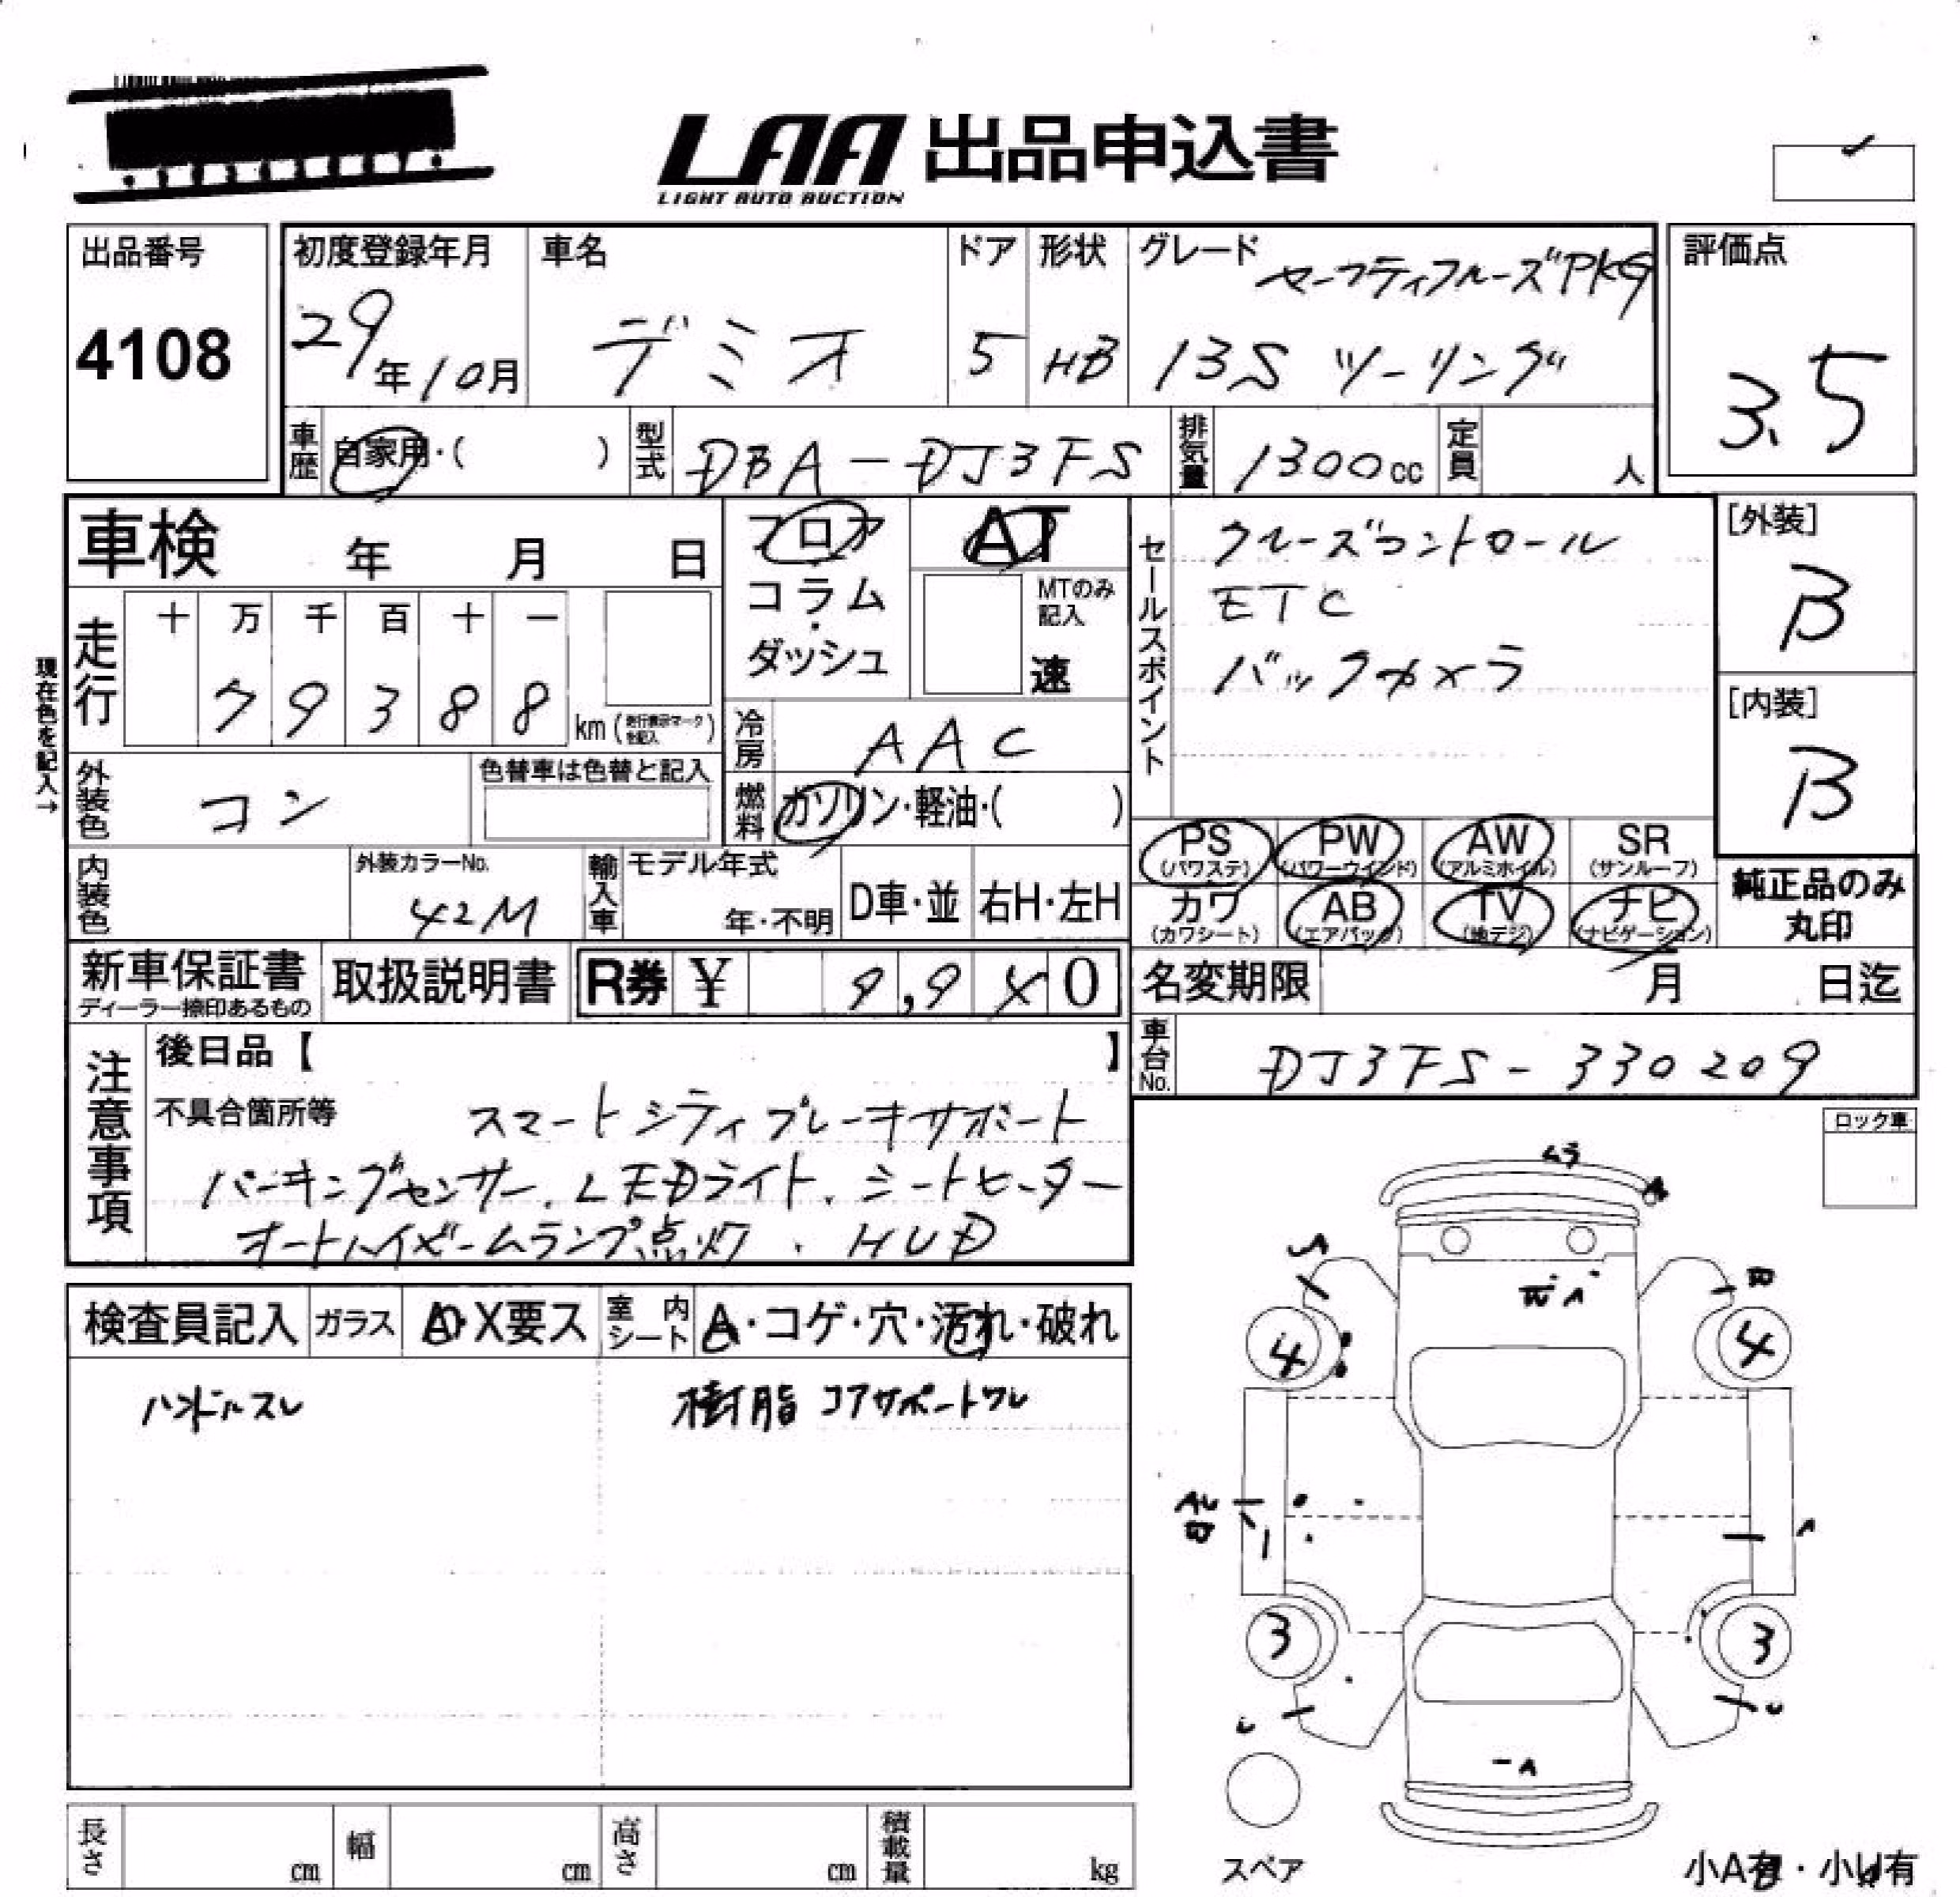 LAA 出品申込書
LIGHT AUTO AUCTION
出品番号
4108
初度登録年月
29年10月
車名
デミオ
ドア
5
形状
HB
グレード
セーフティクルーズPKG
13S ツーリング
評価点
3.5
車歴
自家用・( )
型式
DBA-DJ3FS
排気量
1300cc
定員
人
車検 年 月 日
フロア
コラム
・
ダッシュ
AT
MTのみ
記入
速
セールスポイント
クルーズコントロール
ETC
バックカメラ
[外装]
B
[内装]
B
現在色を記入→
走行
十 万 千 百 十 一
7 9 3 8 8 km (走行表示マークを記入)
冷房
AAC
外装色
コン
色替車は色替と記入
燃料
ガソリン・軽油・( )
PS
(パワステ)
PW
(パワーウインド)
AW
(アルミホイル)
SR
(サンルーフ)
カワ
(カワシート)
AB
(エアバック)
TV
(地デジ)
ナビ
(ナビゲーション)
純正品のみ
丸印
内装色
外装カラーNo.
42M
輸入車
モデル年式
年・不明
D車・並
右H・左H
新車保証書
ディーラー捺印あるもの
取扱説明書
R券 ¥ 9,9 0
名変期限 月 日迄
車台No.
DJ3FS-330209
注意事項
後日品【 】
不具合箇所等
スマートシティブレーキサポート
パーキングセンサー、LEDライト、シートヒーター
オートハイビームランプ点灯、HUD
ロック車
検査員記入
ガラス
A・X要ス
室内シート
A・コゲ・穴・汚れ・破れ
ハンドルスレ
樹脂 コアサポートワレ
ムラ
A
A
4
4
A
A
3
3
U
U
A
スペア
長さ cm
幅 cm
高さ cm
積載量 kg
小A有・小U有